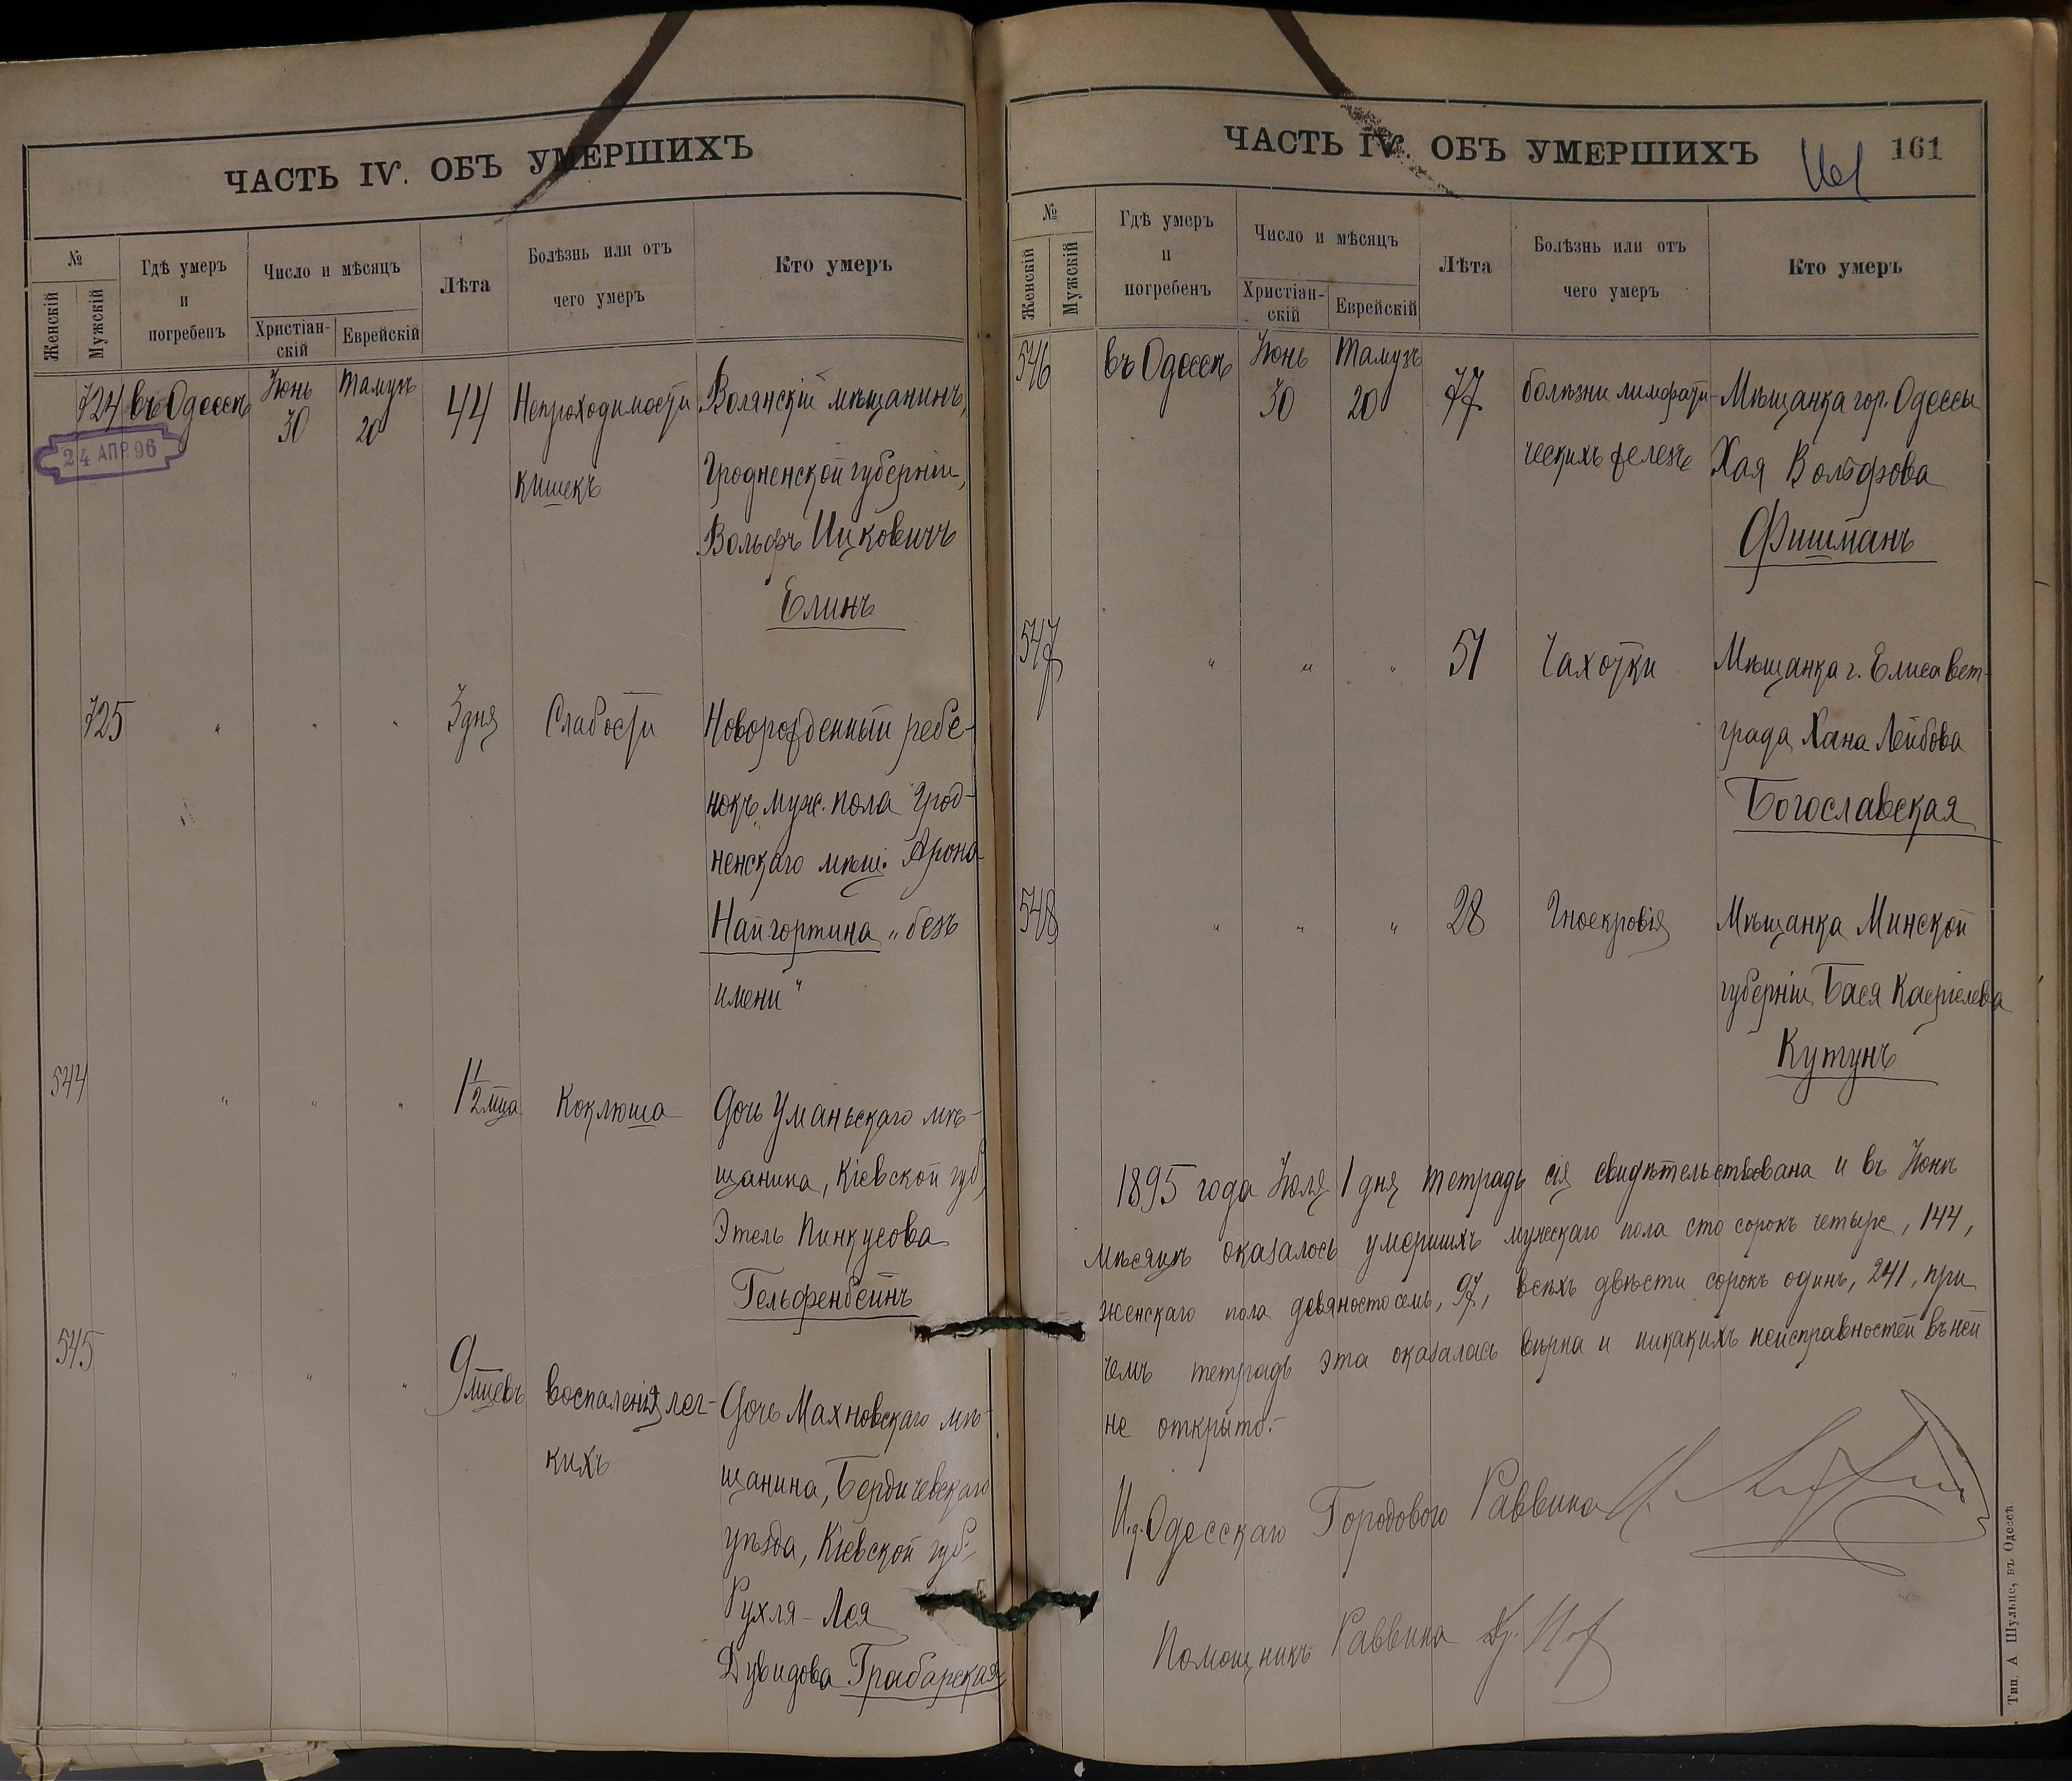 ЧАСТЬ IV. ОБЪ УМЕРШИХЪ
№
Женскій
Мужскій
Гдѣ умеръ
и
погребенъ
Число и мѣсяцъ
Христіан-
скій
Еврейскій
Лѣта
Болѣзнь или отъ
чего умеръ
Кто умеръ
724 въ Одессѣ Іюнь 30 Тамузъ 20 44 Непроходимости Волянскій мѣщанинъ,
24 АПР. 96
кишекъ Гродненской губерніи,
Вольфъ Ицковичъ
Елинъ
725 " " " 3 дня Слабости Новорожденный ребе-
нокъ муж. пола Грод-
ненскаго мѣщ. Арона
Найгортина „безъ
имени"
544 " " " 1½ мца Коклюша Дочь Уманьскаго мѣ-
щанина, Кіевской губ,
Этель Пинкусова
Гельфенбейнъ
545 " " " 9 мцевъ воспаленія лег- Дочь Махновскаго мѣ-
кихъ щанина, Бердичевскаго
уѣзда, Кіевской губ.
Рухля-Лея
Дувидова Грабарская
ЧАСТЬ IV. ОБЪ УМЕРШИХЪ
161
№
Женскій
Мужскій
Гдѣ умеръ
и
погребенъ
Число и мѣсяцъ
Христіан-
скій
Еврейскій
Лѣта
Болѣзнь или отъ
чего умеръ
Кто умеръ
546 въ Одессѣ Іюнь 30 Тамузъ 20 77 болѣзни лимфати- Мѣщанка гор. Одессы
ческихъ железъ Хая Вольфова
Фишманъ
547 " " " 51 Чахотки Мѣщанка г. Елисавет-
града Хана Лейбова
Богославская
548 " " " 28 Гноекровія Мѣщанка Минской
губерніи Бася Касріелева
Кутунъ
1895 года Іюля 1 дня тетрадь сія свидѣтельствована и въ Іюнѣ
мѣсяцѣ оказалось умершихъ мужескаго пола сто сорокъ четыре, 144,
женскаго пола девяносто семь, 97, всѣхъ двѣсти сорокъ одинъ, 241, при
чемъ тетрадь эта оказалась вѣрна и никакихъ неисправностей въ ней
не открыто.-
И.д. Одесскаго Городового Раввина
Помощникъ Раввина
Тип. А Шульце, въ Одессѣ.